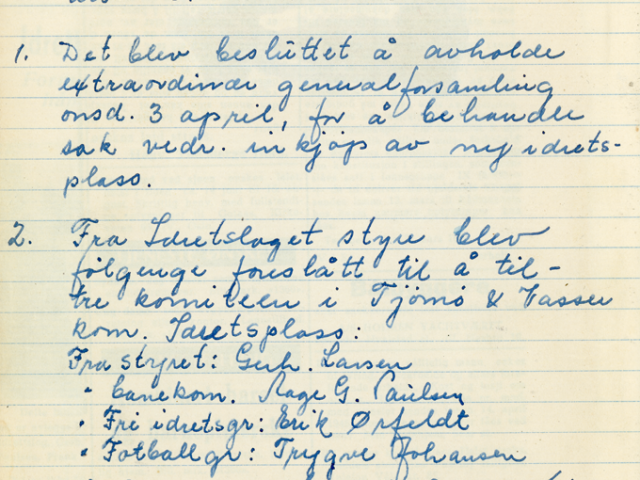 1. Det blev beslüttet å avholde
extraordinær generalforsamling
onsd. 3 april, for å behandle
sak vedr. inkjøp av ny idrets-
plass.
2. Fra Idretslaget styre blev
følgenge foreslått til å til-
tre komiteen i Tjömö & Vasser
kom. Idretsplass:
Fra styret: Gerh. Larsen
" banekom. Aage G. Paulsen
" Fri idretsgr: Erik Ørfeldt
" Fotballgr: Trygve Johansen